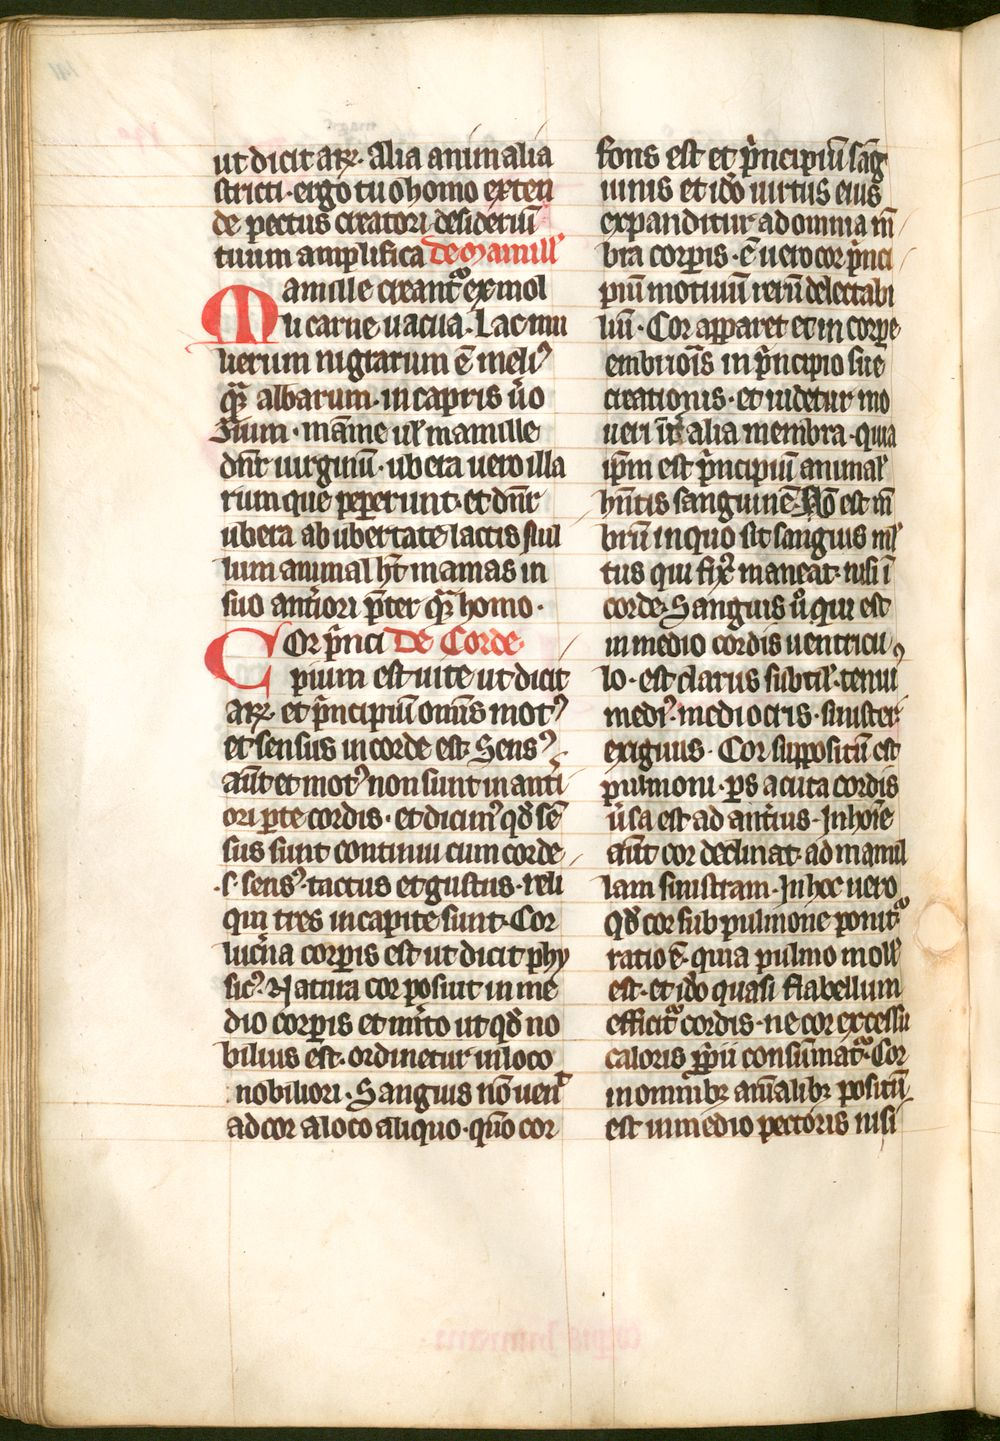 ut dicit arꝝ. Alia animalia
stricti. ergo tu o homo exten
de pectus creatori. desideriū
tuum amplifica de Mamill'
Mamille creant᷑ ex mol
li carne uacua. Lac mu
lierum nigrarum ē meliꝰ
quā albarum. in capris ūo
māme ul' mamille
dn̄r uirginū. ubera uero illa
rum que pepererunt. et dn̄r
ubera ab ubertate lactis. Nul
lum animal hꝫ mamas in
suo anteriori p̄ter qm̄ homo.
Cor p̄nci De Corde
pium est uite ut dicit
arꝝ. et p̄ncipiū omnis motꝰ
et sensus in corde est. Sensꝰ
aūt et motꝰ non sunt in anti
ori ꝑte cordis. et dicim᷒ qd̄ sē
sus sunt continui cum corde
.s. sensꝰ tactus et gustus. reli
qui tres in capite sunt. Cor
lucerna corꝑis est ut dicit phy
sicꝰ. Natura cor posuit in me
dio corꝑis et mīto ut qd̄ no
bilius est. ordinetur in loco
nobiliori. Sanguis nō uenit
ad cor a loco aliquo. qm̄o cor
fons est et p̄ncipiū sang
uinis et ido uirtus eius
expanditur ad omnia mē
bra corꝑis. ē uero cor p̄nci
piū motiuū rerū delectabi
liū. Cor apparet et in corꝑe
embriōis in p̄ncipio sue
creationis. et uidetur mo
ueri int᷑ alia membra. quia
ipm est p̄ncipiū animal'
hn̄tis sanguinē. Nō est mē
brū in quo sit sanguis mul
tus qui fixꝰ maneat. nisi ī
corde. Sanguis ū qui est
in medio cordis uentricu
lo. est clarus subtil'. tenui
medi᷒ mediocris. sinister
exiguus. Cor suppositū est
pulmoni. ps acuta cordis
ūsa est ad anterius. In hoīe
aūt cor declinat ad mamil
lam sinistram. In hoc uero
qd̄ cor sub pulmone ponit᷑
ratio ē. quia pulmo moll'
est. et ido quasi flabellum
efficit᷑ cordis. ne cor excessu
caloris ꝓp̄ii consumat᷑. Cor
in omnibꝫ aīalibꝫ positū
est in medio pectoris nisi